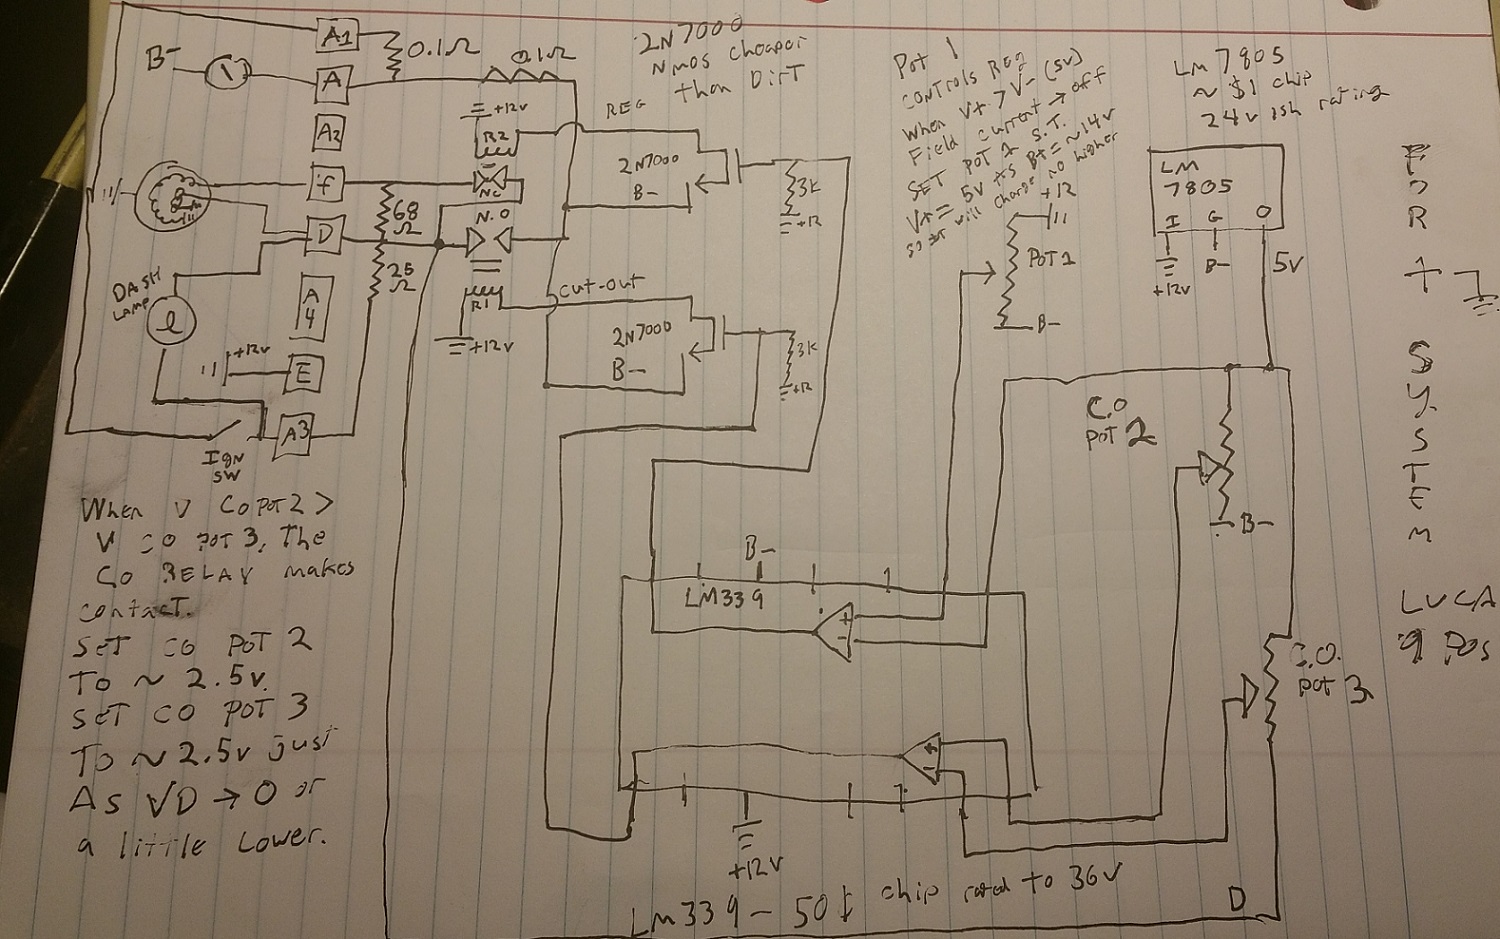 A1
0.1Ω
0.1Ω
B-
A
A2
f
68
Ω
D
25
Ω
DASH
LAMP
A
4
+12v
E
A3
Ign
SW
+12v
R2
NC
N.O
R1
+12v
REG
2N7000
B-
3K
+12
cut-out
2N7000
B-
3K
+12
2N7000
Nmos cheaper
than Dirt
Pot 1
controls REG
when V+ > V- (5v)
Field current → off
SET POT 1 S.T.
V+ = 5v as B+ = ~14v
so it will charge no higher
+12
POT 1
B-
LM 7805
~ $1 chip
24v ish rating
LM
7805
I G O
+12v
B-
5V
FOR
+
SYSTEM
LUCA
9 POS
C.O
POT 2
B-
C.O.
pot 3
D
B-
LM339
+
-
+
-
+12v
LM339 - 50¢ chip rated to 36V
When V CO POT 2 >
V CO POT 3, The
CO RELAY makes
contact.
SET CO POT 2
To ~ 2.5v.
SET CO POT 3
To ~ 2.5v just
As VD → 0 or
a little lower.